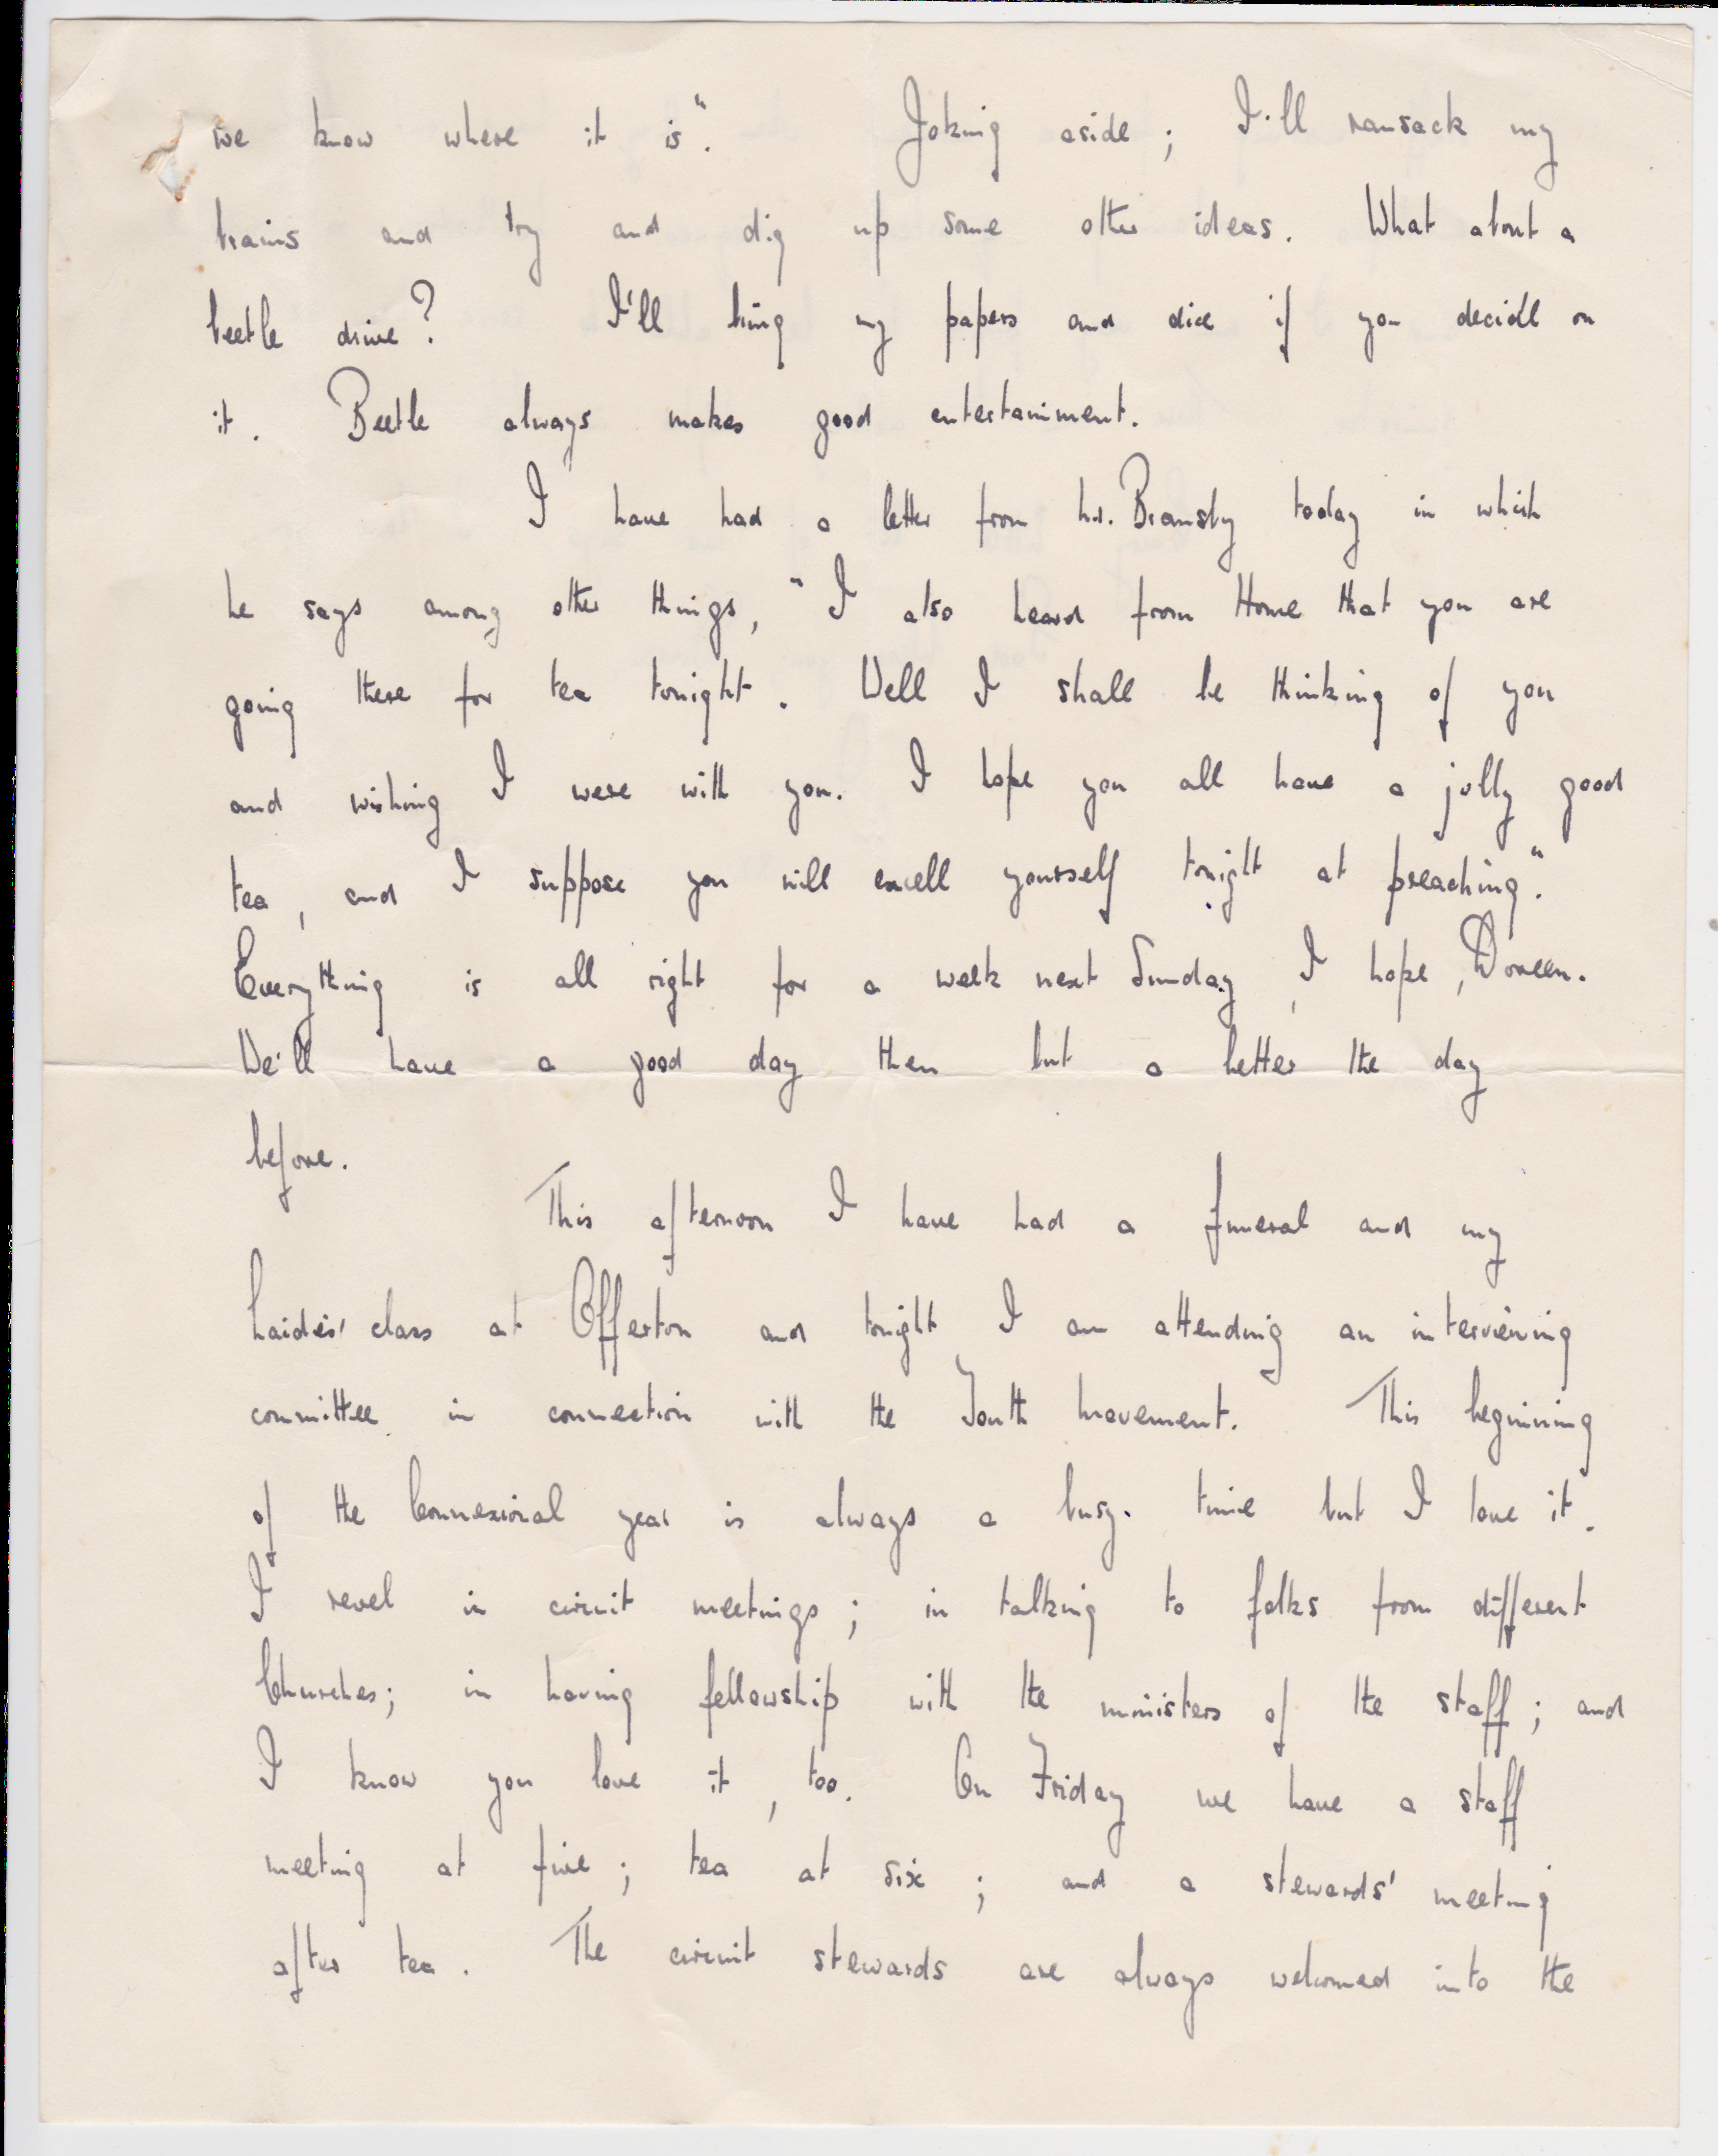 we know where it is". Joking aside; I'll ransack my
brains and try and dig up some other ideas. What about a
beetle drive? I'll bring my papers and dice if you decide on
it. Beetle always makes good entertainment.
I have had a letter from Mr. Bransby today in which
he says among other things, "I also heard from Home that you are
going there for tea tonight. Well I shall be thinking of you
and wishing I were with you. I hope you all have a jolly good
tea, and I suppose you will excell yourself tonight at preaching".
Everything is all right for a week next Sunday, I hope, Doreen.
We'll have a good day then but a better the day
before.
This afternoon I have had a funeral and my
Laidies' class at Offerton and tonight I am attending an interviewing
committee in connection with the Youth Movement. This beginning
of the Connexional year is always a busy time but I love it.
I revel in circuit meetings; in talking to folks from different
Churches; in having fellowship with the ministers of the staff; and
I know you love it, too. On Friday we have a staff
meeting at five; tea at six; and a stewards' meeting
after tea. The circuit stewards are always welcomed into the